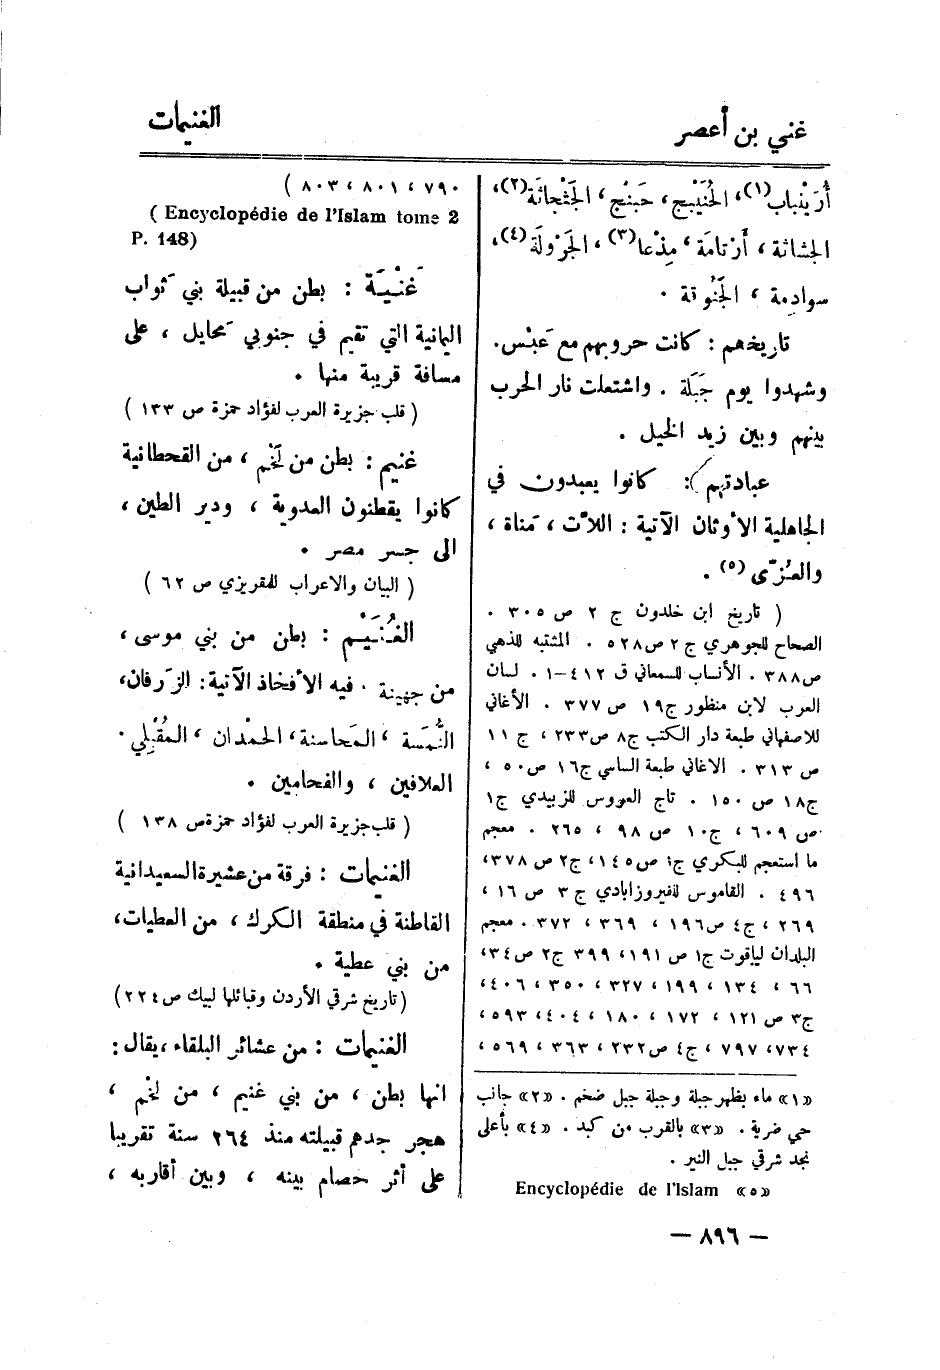 غني بن أعصر
الغنيمات
أُرَيْنِباب(١)، الخُنَيْبِج، حَبَنْج، الجَثْجاثَة(٢)،
الجثاثة، أَرْتامَة، مِذْعا(٣)، الجَرْولَة(٤)،
سوادمة، الجَنُوقة .
تاريخهم : كانت حروبهم مع عَبْس.
وشهدوا يوم جَبَلَة . واشتعلت نار الحرب
بينهم وبين زيد الخيل .
عبادتهم : كانوا يعبدون في
الجاهلية الأوثان الآتية : اللاَّت، مَناة،
والعُزّى (٥) .
( تاريخ ابن خلدون ج ٢ ص ٣٠٥ .
الصحاح للجوهري ج ٢ ص ٥٢٨ . المشتبه للذهبي
ص ٣٨٨ . الأنساب للسمعاني ق ٤١٢-١ . لسان
العرب لابن منظور ج ١٩ ص ٣٧٧ . الأغاني
للاصفهاني طبعة دار الكتب ج ٨ ص ٢٣٣، ج ١١
ص ٣١٣ . الاغاني طبعة الساسي ج ١٦ ص ٥٠،
ج ١٨ ص ١٥٠ . تاج العروس للزبيدي ج ١
ص ٦٠٩، ج ١٠ ص ٩٨، ٢٦٥ . معجم
ما استعجم للبكري ج ١ ص ١٤٥، ج ٢ ص ٣٧٨،
٤٩٦ . القاموس للفيروزابادي ج ٣ ص ١٦،
٢٦٩، ج ٤ ص ١٩٦، ٣٦٩، ٣٧٢ . معجم
البلدان لياقوت ج ١ ص ١٩١، ٣٩٩ ج ٢ ص ٣٤،
٦٦، ١٣٤، ١٩٩، ٣٢٧، ٣٥٠، ٤٠٦،
ج ٣ ص ١٢١، ١٧٢، ١٨٠، ٤٠٤، ٥٩٣،
٧٣٤، ٧٩٧، ج ٤ ص ٢٣٢، ٣٦٣، ٥٦٩،
«١» ماء بظهر جبلة وجبلة جبل ضخم . «٢» جانب
حمي ضرية . «٣» بالقرب من كبد . «٤» بأعلى
نجد شرقي جبل النير .
«٥» Encyclopédie de l'Islam
٧٩٠، ٨٠١، ٨٠٣ )
( Encyclopédie de l'Islam tome 2
P. 148)
غَنْيَة : بطن من قبيلة بني ثَواب
اليمانية التي تقيم في جنوبي مَحايل، على
مسافة قريبة منها .
( قلب جزيرة العرب لفؤاد حمزة ص ١٣٣ )
غنيم : بطن من لَخْم، من القحطانية
كانوا يقطنون العدوية، ودير الطين،
الى جسر مصر .
( البيان والاعراب للمقريزي ص ٦٢ )
الغُنَيْم : بطن من بني موسى،
من جهينة . فيه الأفخاذ الآتية : الزَرفان،
النُّمَسة، المَحاسنة، الحمْدان، المُقْبِلي .
العلافين، والفحامين .
( قلب جزيرة العرب لفؤاد حمزة ص ١٣٨ )
الغنيمات : فرقة من عشيرة السعيدانية
القاطنة في منطقة الكرك، من العطيات،
من بني عطية .
(تاريخ شرقي الأردن وقبائلها لبيك ص ٢٢٤)
الغنيمات : من عشائر البلقاء، يقال :
انها بطن، من بني غنيم، من لخم،
هجر جدهم قبيلته منذ ٢٦٤ سنة تقريبا
على أثر خصام بينه، وبين أقاربه،
— ٨٩٦ —